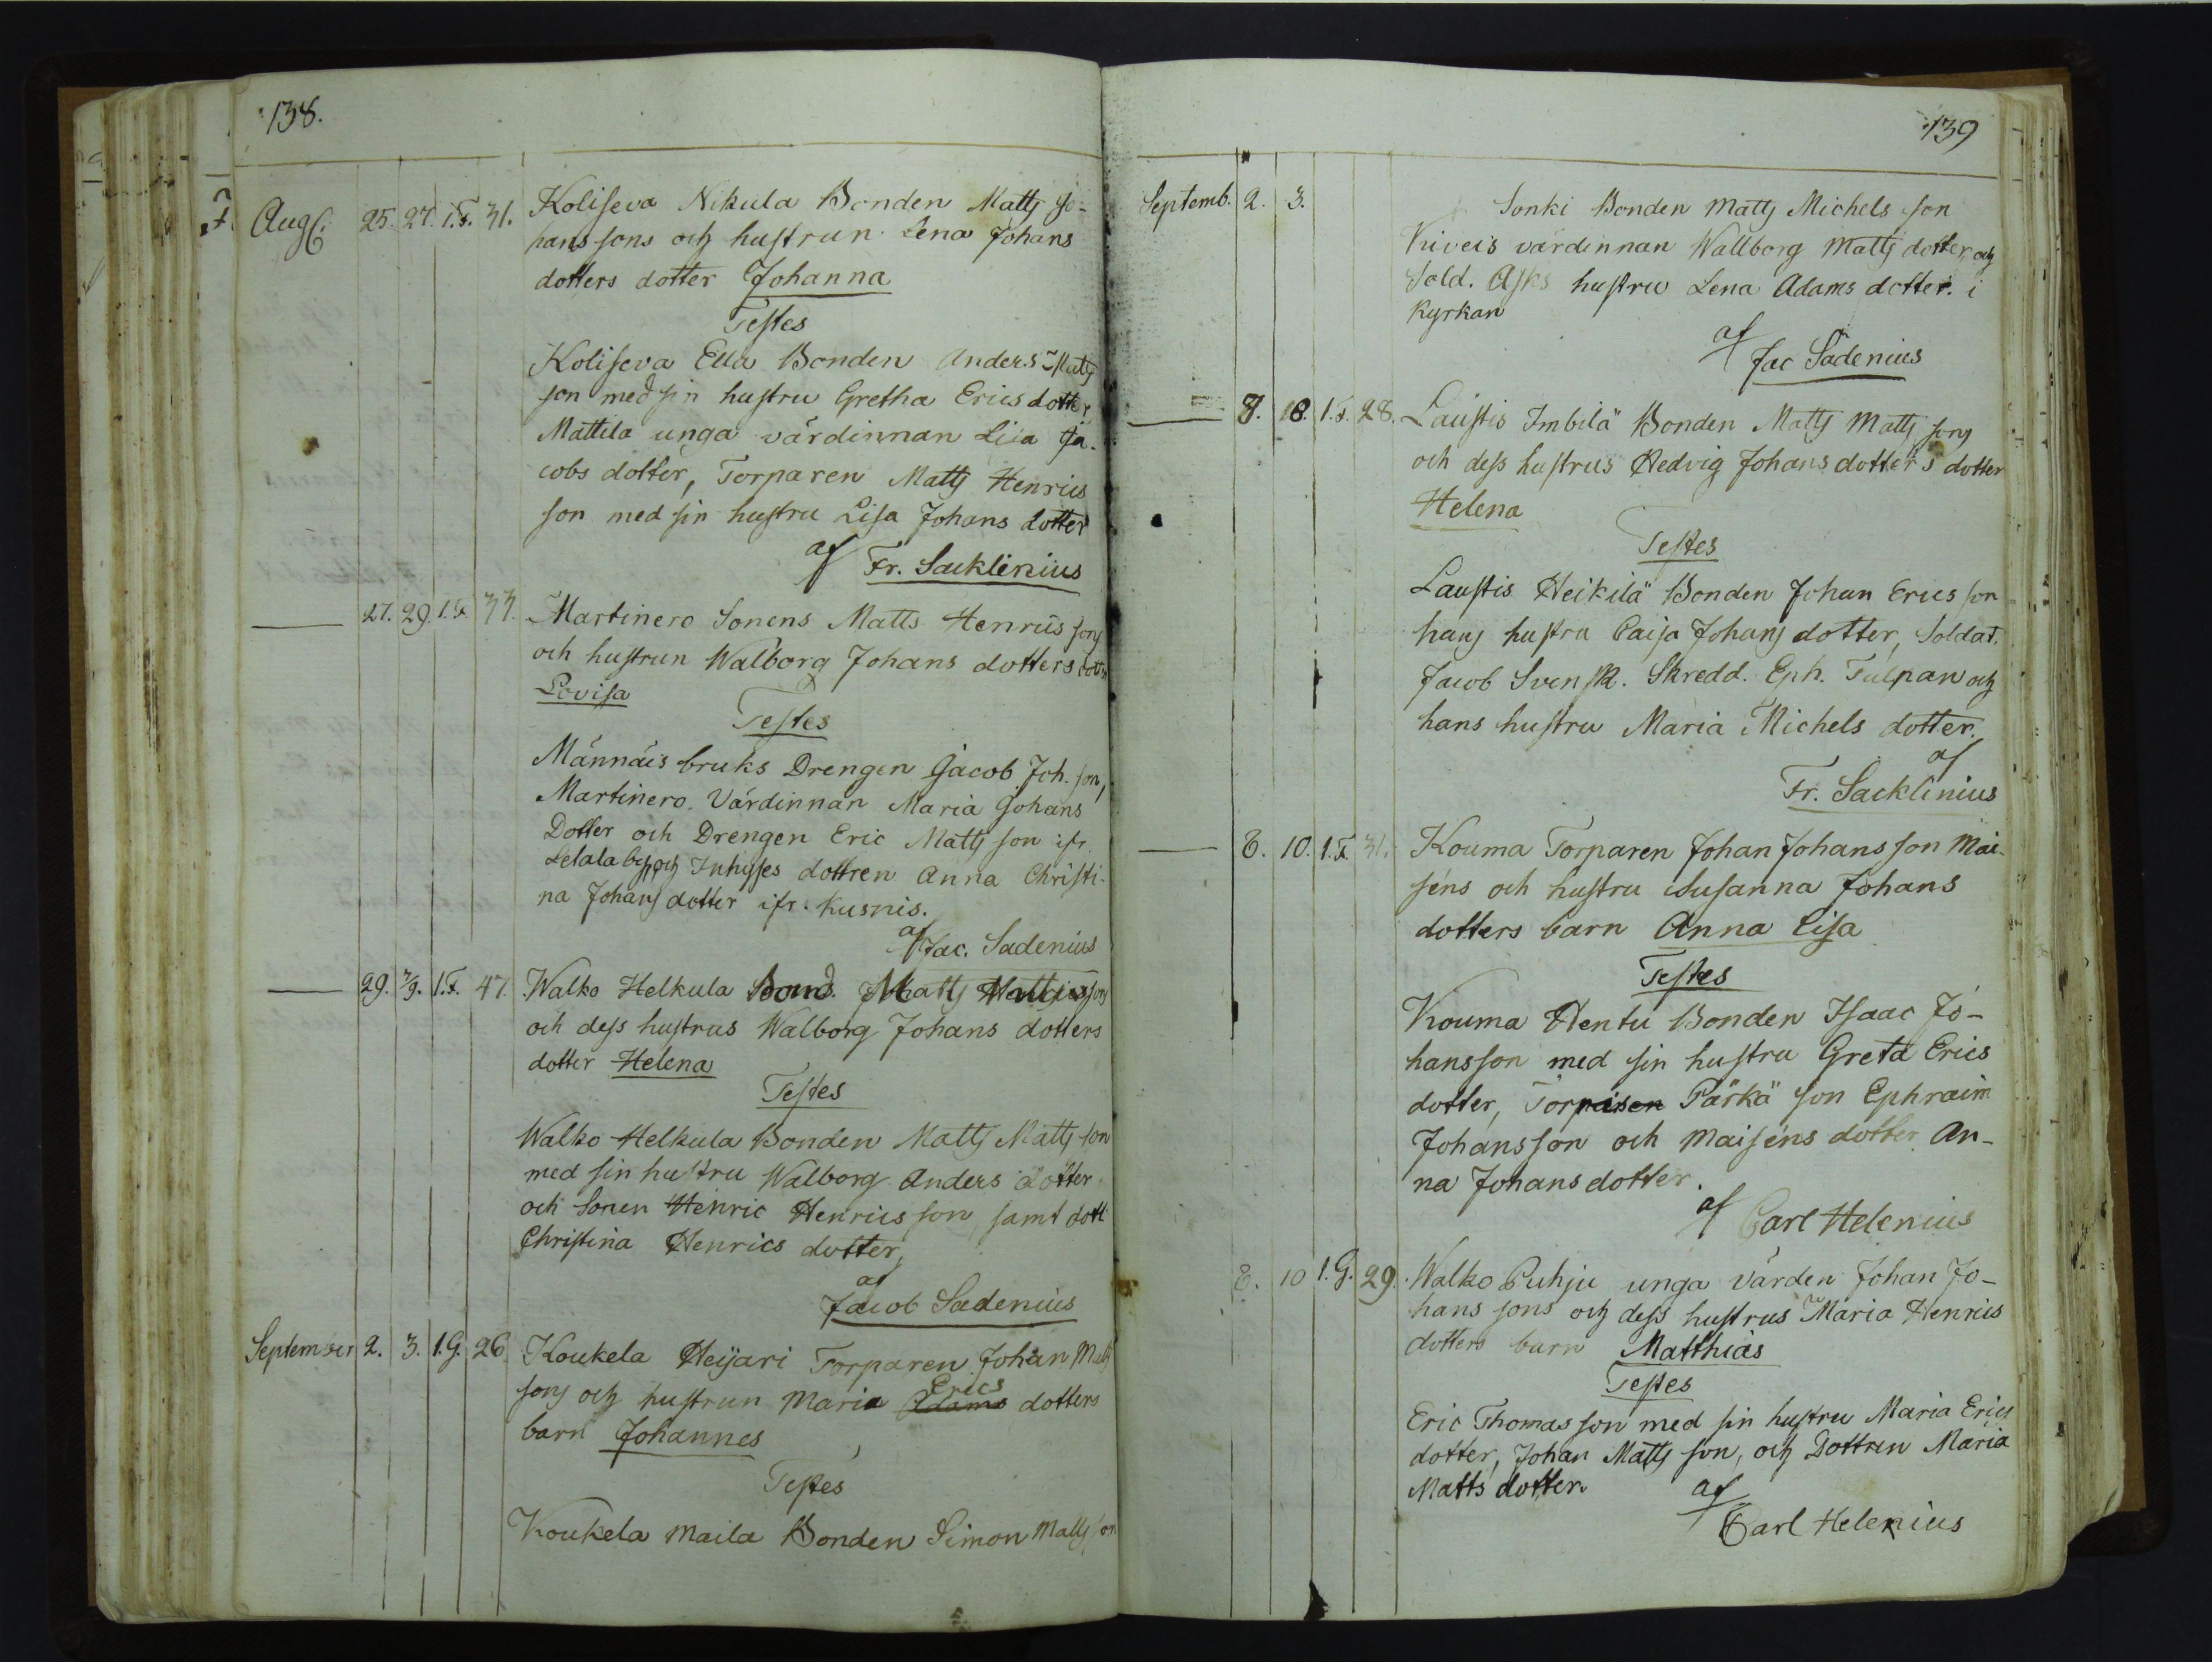 138.
Aug. 25. 27. 1.F. 31. Koliseva Nikula Bonden Matts Jo-
hanssons och hustrun Lena Johans
dotters dotter Johanna
Testes
Koliseva Ella Bonden Anders Matts
son med sin hustru Gretha Ericsdotter
Mattila unga värdinnan Liia Ja-
cobs dotter, Torparen Matts Henrics
son med sin hustru Lisa Johans dotter
af Fr. Sacklinius
27. 29. 1.F. 33. Martinero Sonens Matts Henrics sons
och hustrun Walborg Johans dotters dotter
Lovisa
Testes
Männäis bruks Drengen Jacob Joh. son,
Martinero Värdinnan Maria Johans
Dotter och Drengen Eric Matts son ifr.
Lelala by, och Inhyses dottren Anna Christi-
na Johans dotter ifr. Kusnis.
af Jac. Sadenius
29. 2/9. 1.F. 47. Walko Helkula Bond. Matts Mattssons
och dess hustrus Walborg Johans dotters
dotter Helena
Testes
Walko Helkula Bonden Matts Matts son
med sin hustru Walborg Anders dotter
och Sonen Henric Henrics son samt dott
Christina Henrics dotter,
af
Jacob Sadenius
September 2. 3. 1.G. 26. Koukela Heijari Torparen Johan Matts
Erics
sons och hustrun Maria Adams dotters
barn Johannes
Testes
Koukela Maila Bonden Simon Matts son
139
Septemb. 2. 3. Sonki Bonden Matts Michels son
Kiveis värdinnan Wallborg Matts dotter, och
Sold. Asks hustru Lena Adams dotter. i
Kyrkan
af
Jac Sadenius
8. 18. 1.F. 28. Laustis Imbilä Bonden Matts Matts sons
och dess hustrus Hedvig Johans dotters dotter
Helena
Testes
Laustis Heikilä Bonden Johan Erics son
hans hustru Caisa Johans dotter, Soldat.
Jacob Svensk. Skredd. Eph. Tulpan och
hans hustru Maria Michels dotter.
af
Fr. Sacklinius
8. 10. 1.F. 31. Kouma Torparen Johan Johansson Mai-
séns och hustru Susanna Johans
dotters barn Anna Lisa
Testes
Kouma Hentu Bonden Isaac Jo-
hansson med sin hustru Greta Erics
dotter, Torparen Pärkä son Ephraim
Johansson och Maiséns dotter An-
na Johans dotter.
af Carl Helenius
8. 10 1.G. 29. Walko Puhju unga värden Johan Jo-
hans sons och dess hustrus Maria Henrics
dotters barn Matthias
Testes
Eric Thomas son med sin hustru Maria Erics
dotter, Johan Matts son, och Dottren Maria
Matts dotter.
af
Carl Helenius